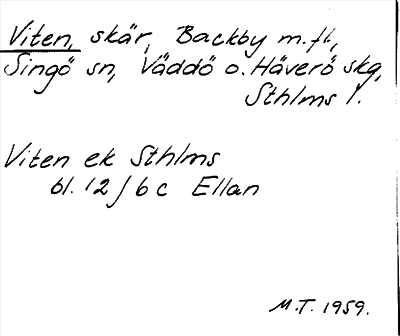 Viten, skär, Backby m.fl,
Singö sn, Väddö o. Häverö skg,
Sthlms l.
Viten ek Sthlms
bl. 12 / 6 c Ellan
M.T. 1959.